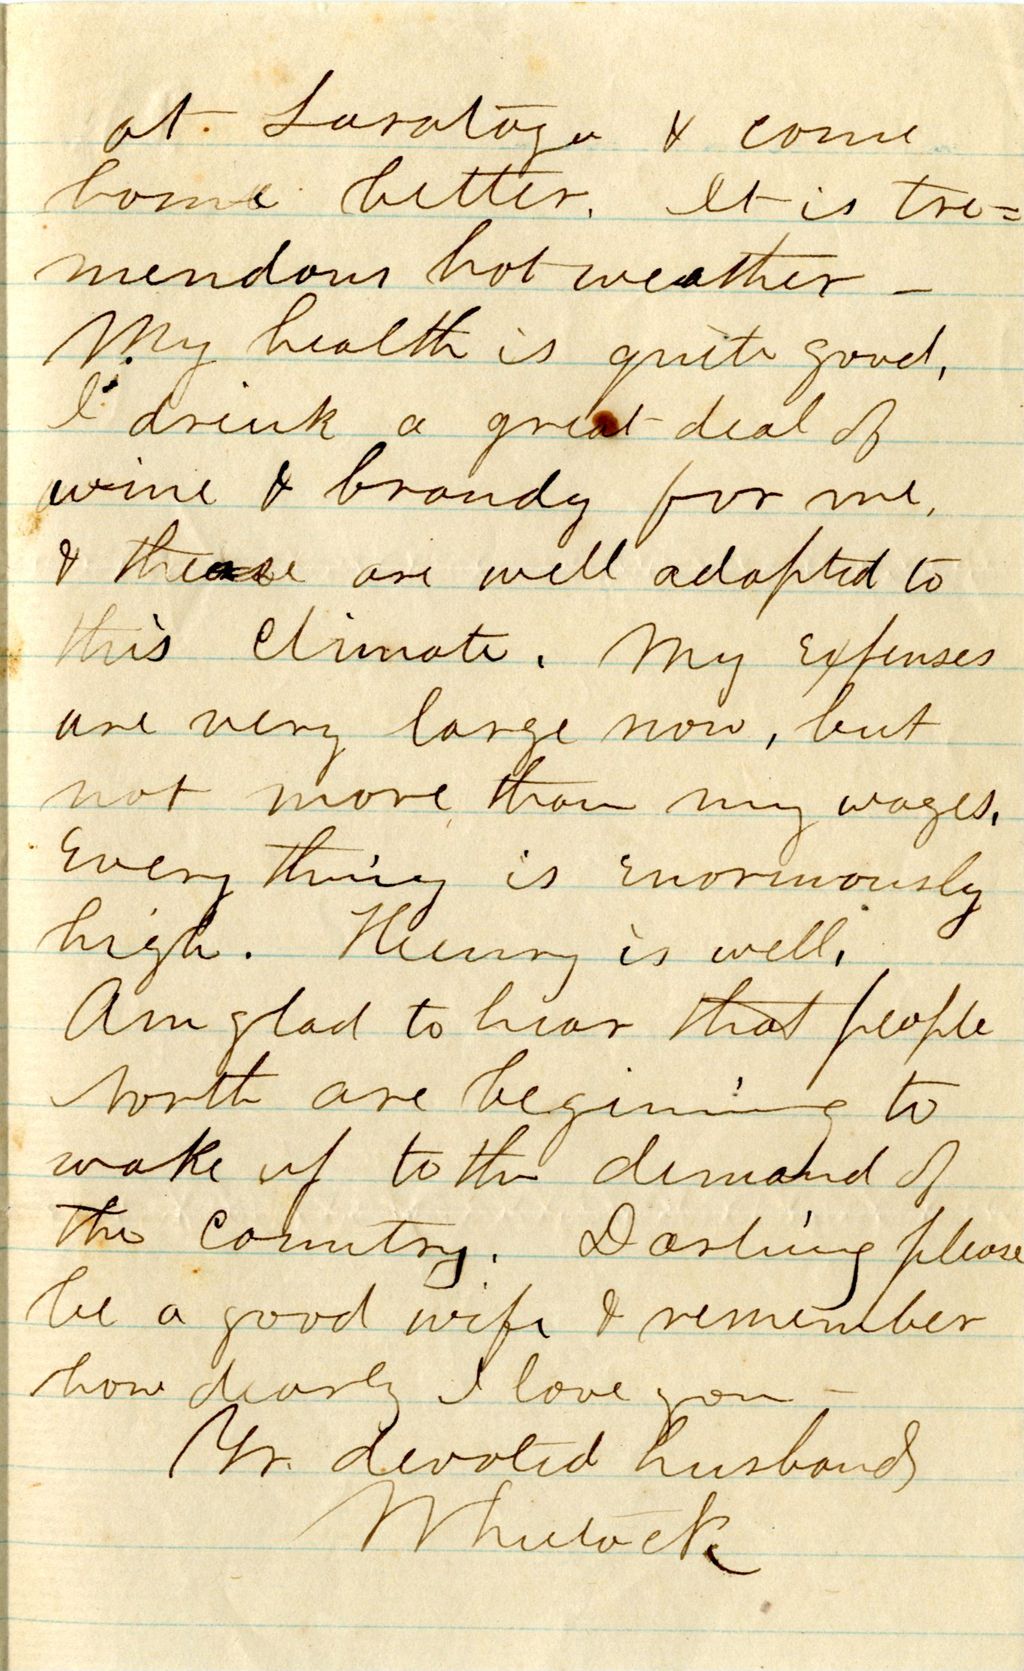 at Saratoga & come
home better. It is tre=
mendous hot weather –
My health is quite good,
I drink a great deal of
wine & brandy for me,
& these are well adapted to
this climate. My expenses
are very large now, but
not more than my wages.
Every thing is enormously
high. Henry is well.
Am glad to hear that people
North are begining to
wake up to the demand of
the country. Darling please
be a good wife & remember
how dearly I love you –
Yr. devoted husband
Wheelock